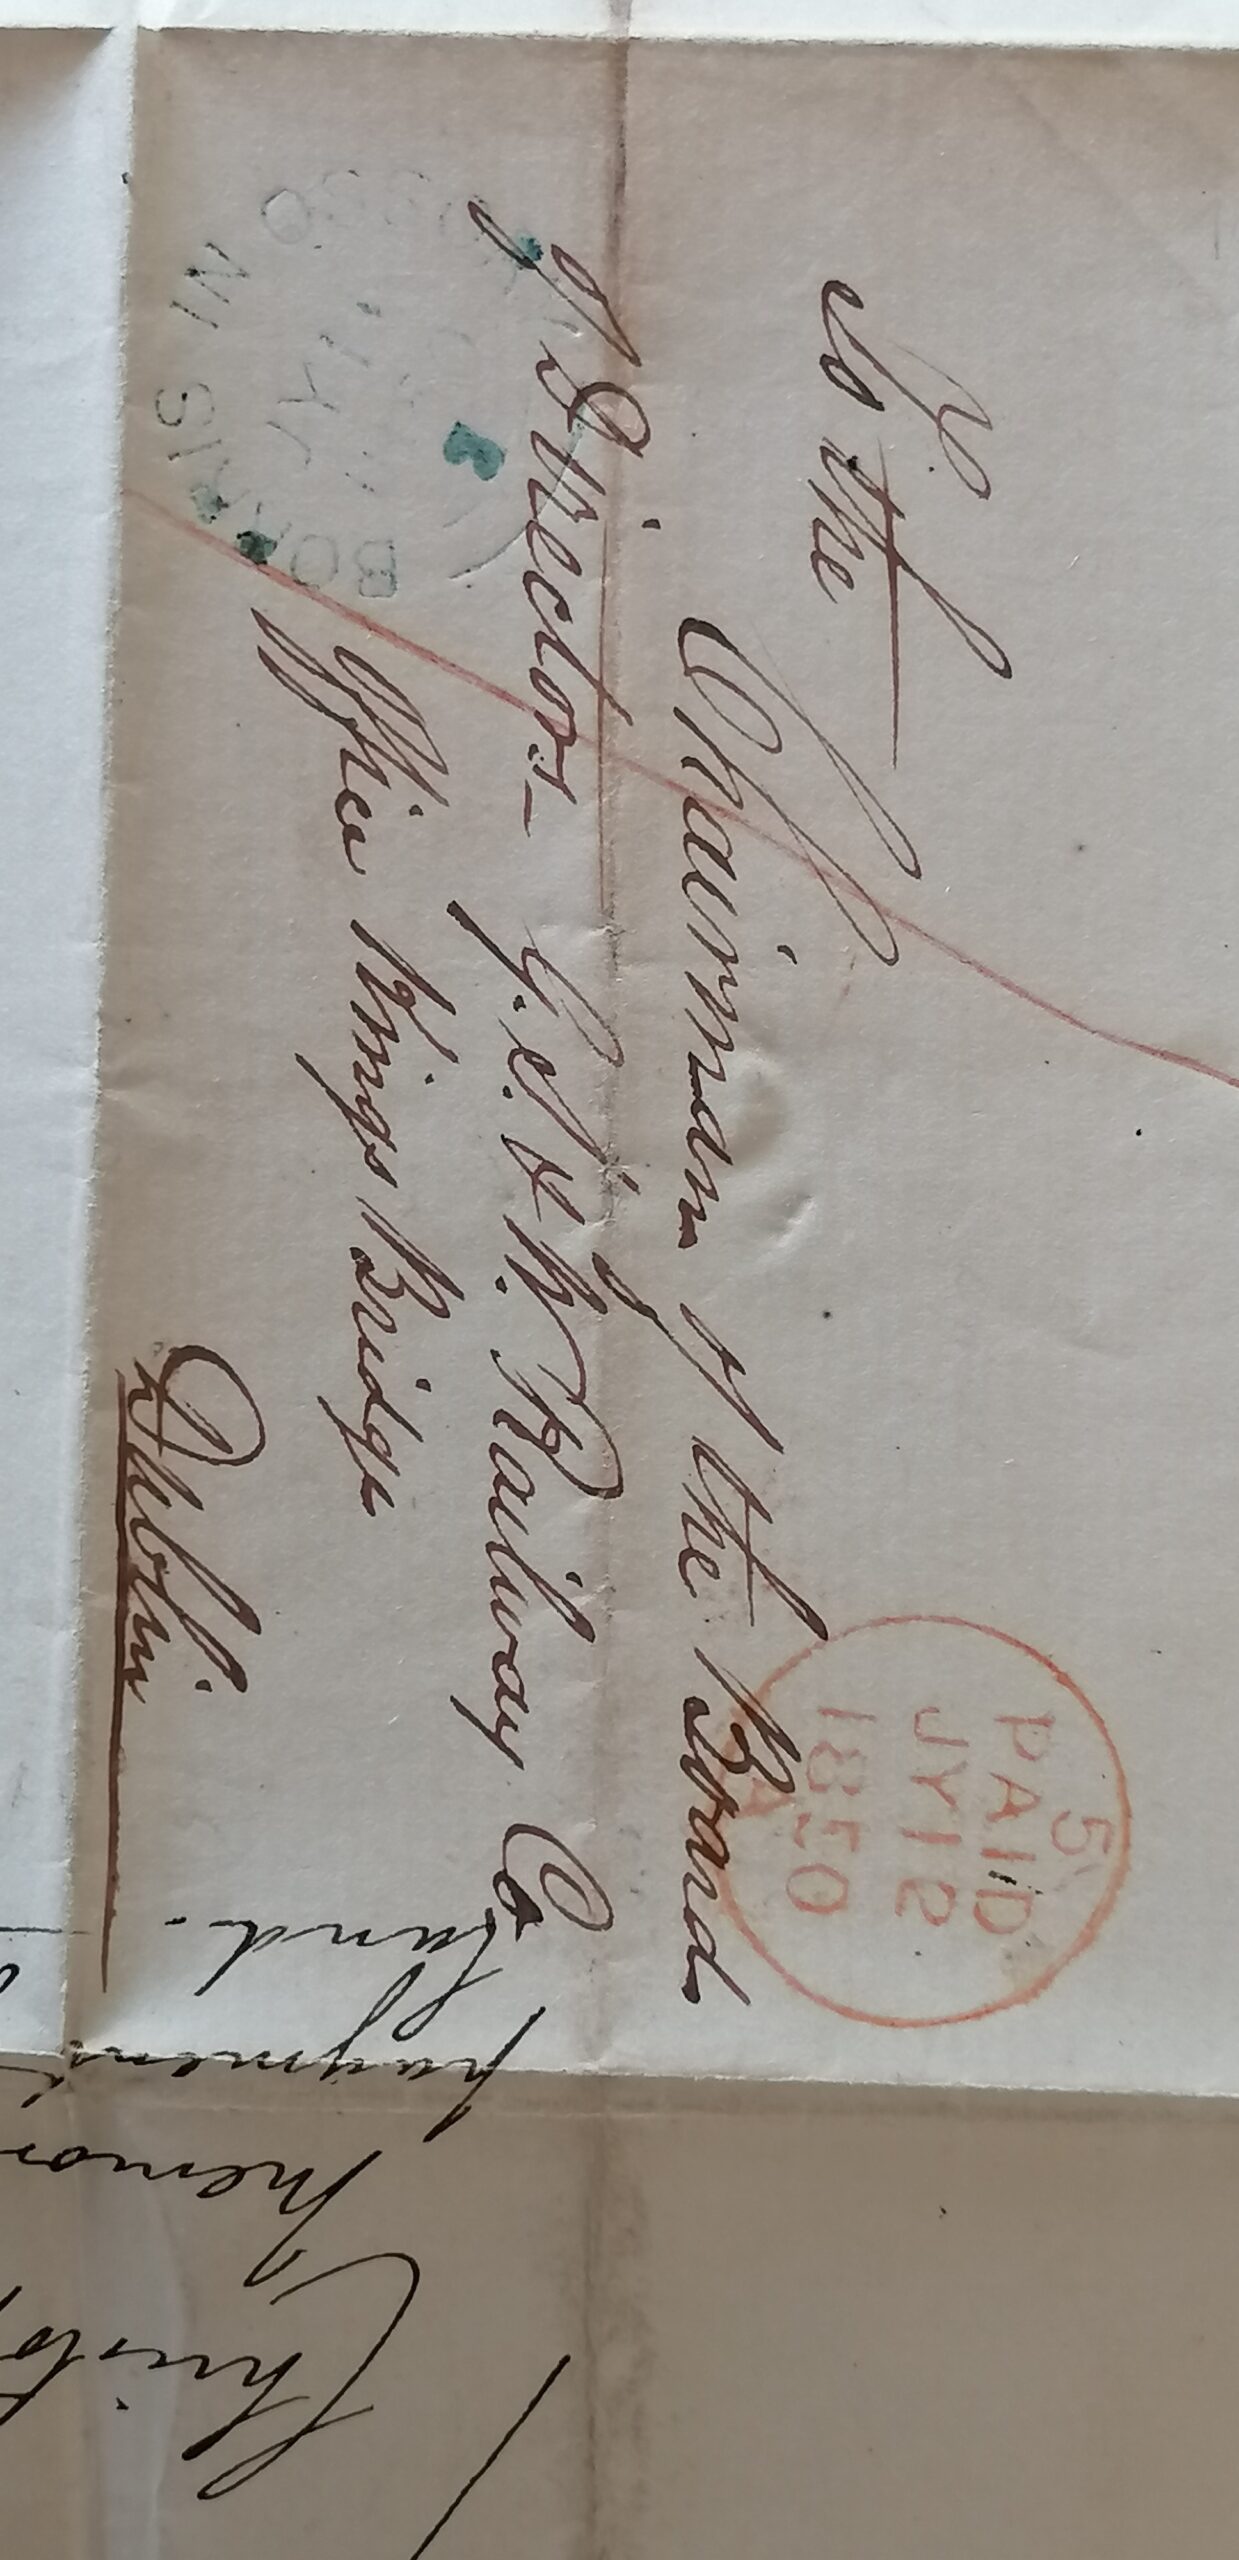 To the
Chairman of the Board
of Directors
G. S. & W. Railway Co
Office Kings Bridge
Dublin
5
PAID
JY 12
1850
A
BORRIS IN OSSO
JY 11
land.
payment